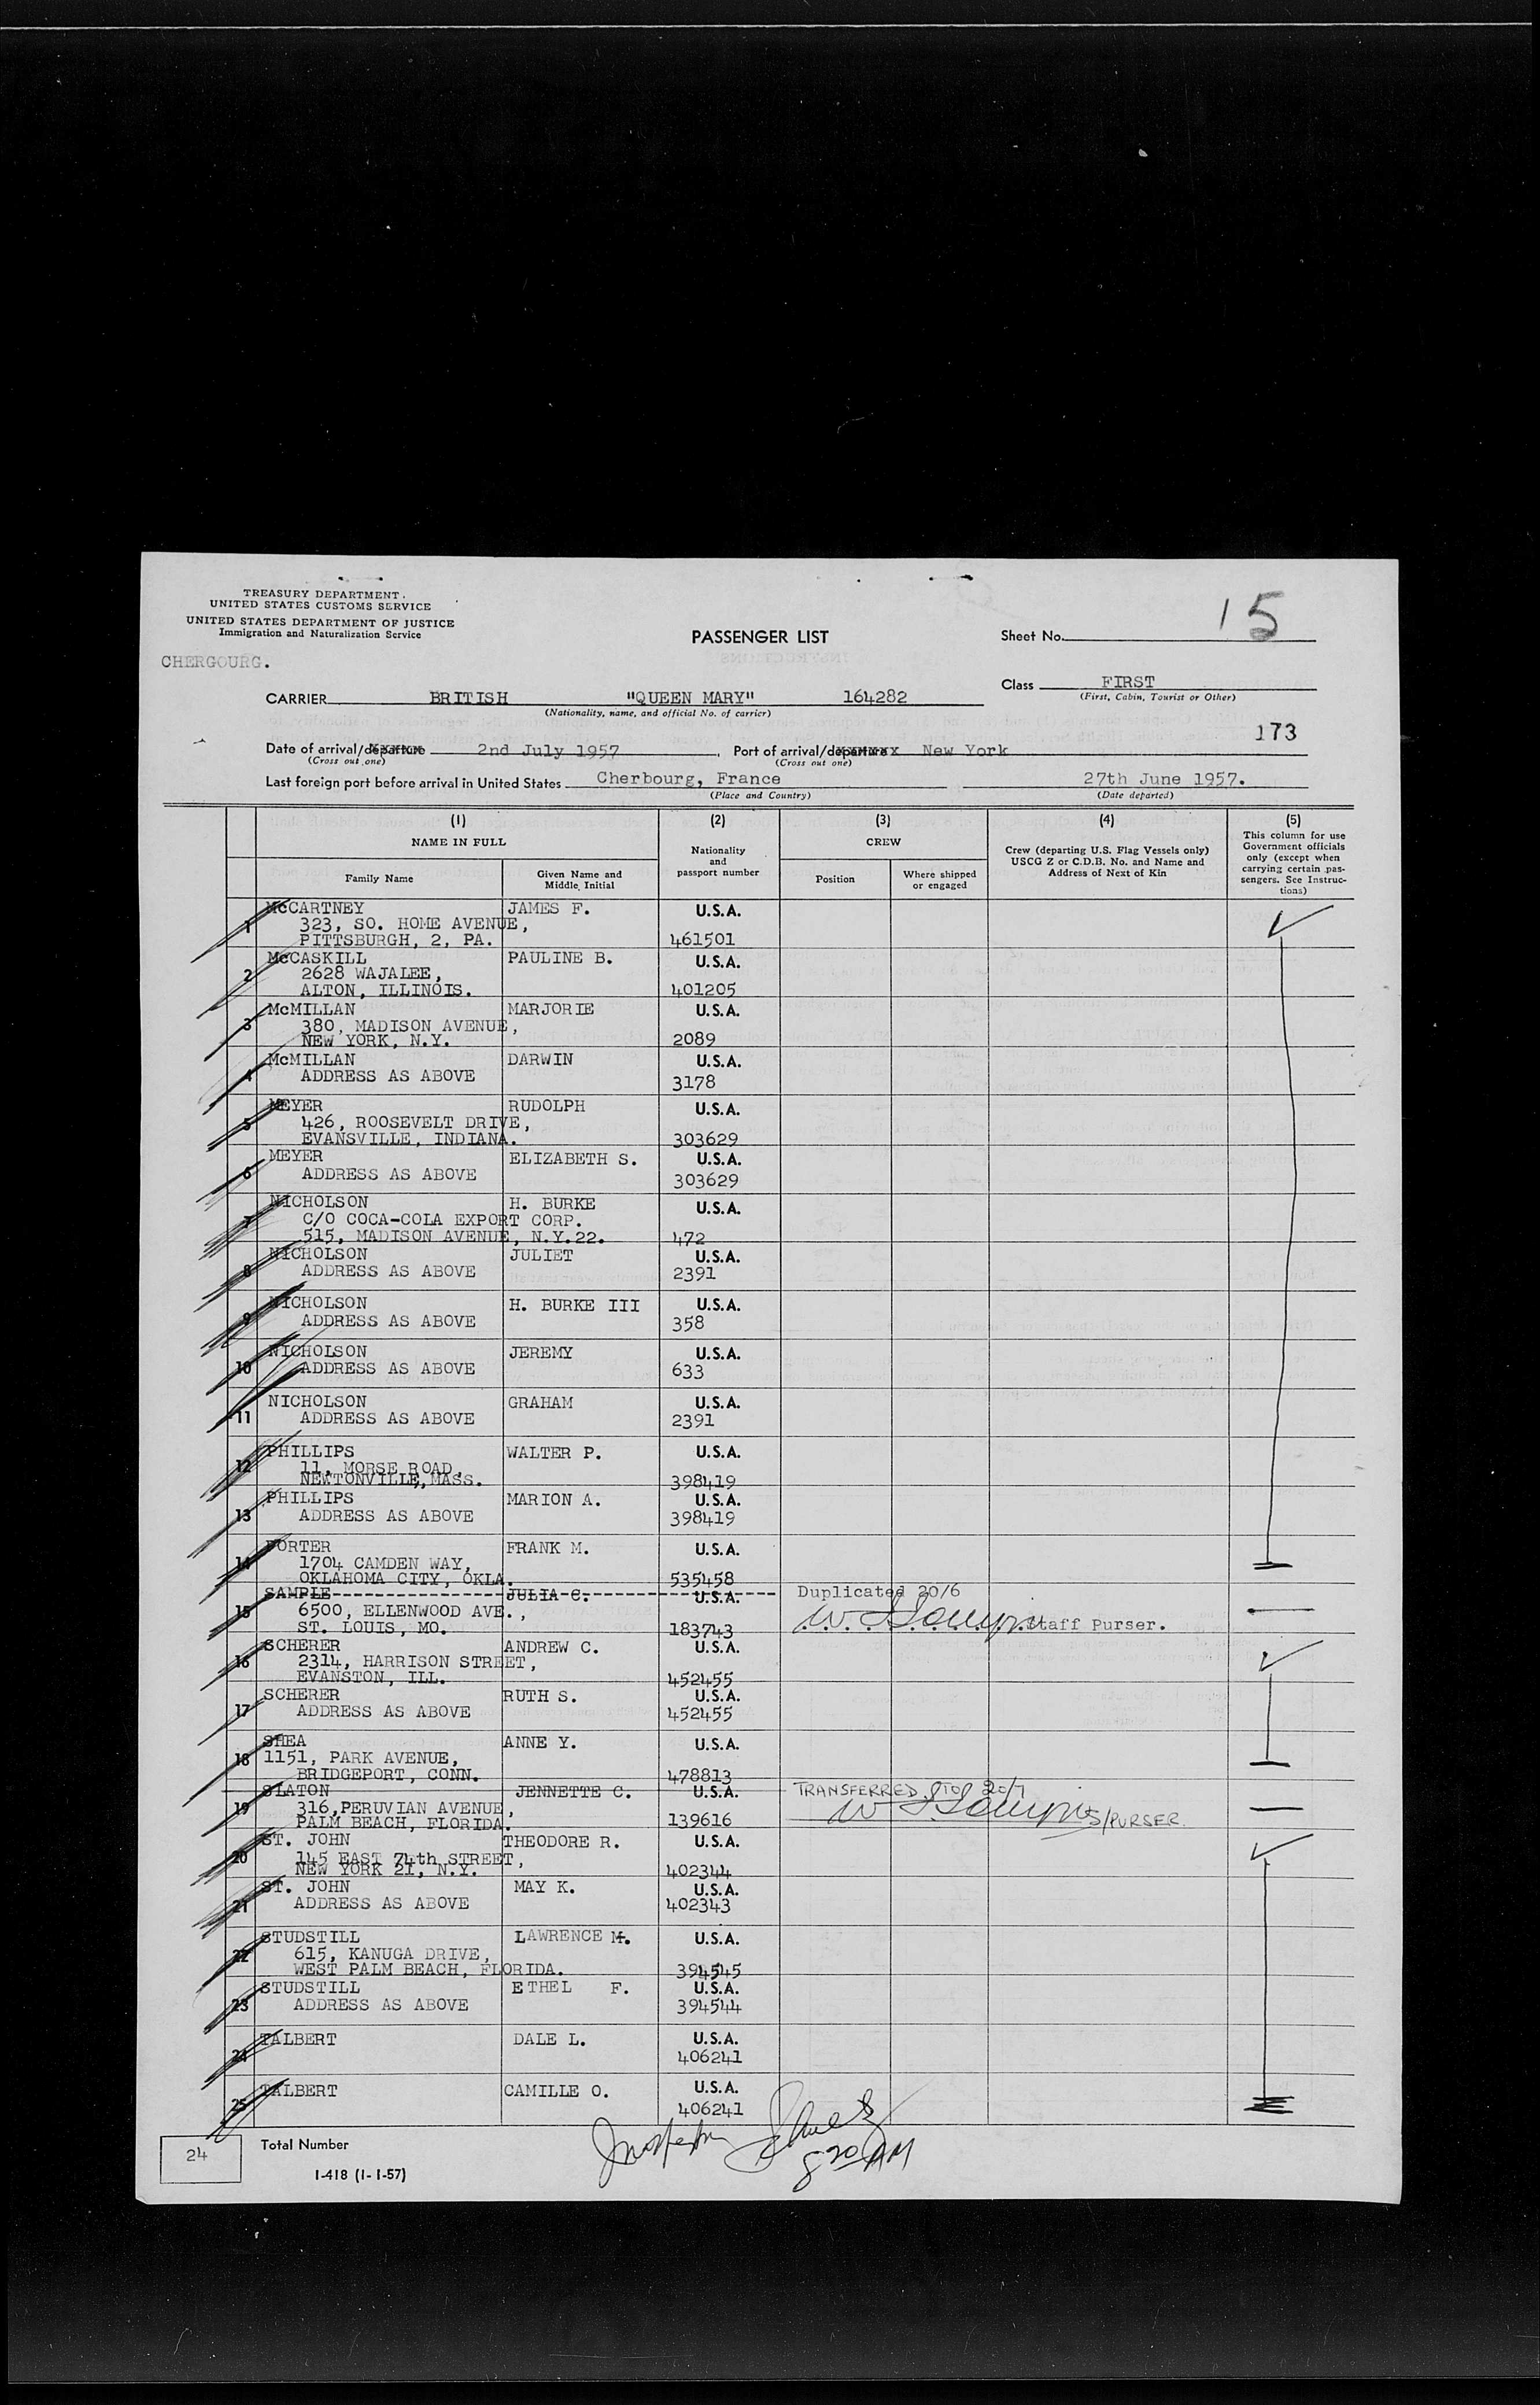 TREASURY DEPARTMENT.
UNITED STATES CUSTOMS SERVICE
UNITED STATES DEPARTMENT OF JUSTICE
Immigration and Naturalization Service
PASSENGER LIST
Sheet No. 15
CHERGOURG.
Class FIRST
(First, Cabin, Tourist or Other)
CARRIER BRITISH "QUEEN MARY" 164282
(Nationality, name, and official No. of carrier)
173
Date of arrival/departure 2nd July 1957, Port of arrival/departure New York
(Cross out one) (Cross out one)
Last foreign port before arrival in United States Cherbourg, France 27th June 1957.
(Place and Country) (Date departed)
(1) (2) (3) (4) (5)
NAME IN FULL
Nationality and passport number
CREW
Crew (departing U.S. Flag Vessels only) USCG Z or C.D.B. No. and Name and Address of Next of Kin
This column for use Government officials only (except when carrying certain pas- sengers. See Instruc- tions)
Family Name
Given Name and Middle Initial
Position
Where shipped or engaged
1 McCARTNEY JAMES F. U.S.A.
323, SO. HOME AVENUE,
PITTSBURGH, 2, PA. 461501
2 McCASKILL PAULINE B. U.S.A.
2628 WAJALEE,
ALTON, ILLINOIS. 401205
3 McMILLAN MARJORIE U.S.A.
380, MADISON AVENUE,
NEW YORK, N.Y. 2089
4 McMILLAN DARWIN U.S.A.
ADDRESS AS ABOVE 3178
5 MEYER RUDOLPH U.S.A.
426, ROOSEVELT DRIVE,
EVANSVILLE, INDIANA. 303629
6 MEYER ELIZABETH S. U.S.A.
ADDRESS AS ABOVE 303629
7 NICHOLSON H. BURKE U.S.A.
C/O COCA-COLA EXPORT CORP.
515, MADISON AVENUE, N.Y.22. 472
8 NICHOLSON JULIET U.S.A.
ADDRESS AS ABOVE 2391
9 NICHOLSON H. BURKE III U.S.A.
ADDRESS AS ABOVE 358
10 NICHOLSON JEREMY U.S.A.
ADDRESS AS ABOVE 633
11 NICHOLSON GRAHAM U.S.A.
ADDRESS AS ABOVE 2391
12 PHILLIPS WALTER P. U.S.A.
11, MORSE ROAD,
NEWTONVILLE, MASS. 398419
13 PHILLIPS MARION A. U.S.A.
ADDRESS AS ABOVE 398419
14 PORTER FRANK M. U.S.A.
1704 CAMDEN WAY,
OKLAHOMA CITY, OKLA. 535458
15 SAMPLE JULIA C. U.S.A. Duplicated 20/6
6500, ELLENWOOD AVE., Staff Purser.
ST. LOUIS, MO. 183743
16 SCHERER ANDREW C. U.S.A.
2314, HARRISON STREET,
EVANSTON, ILL. 452455
17 SCHERER RUTH S. U.S.A.
ADDRESS AS ABOVE 452455
18 SHEA ANNE Y. U.S.A.
1151, PARK AVENUE,
BRIDGEPORT, CONN. 478813
19 SLATON JENNETTE C. U.S.A. TRANSFERRED 20/7
316, PERUVIAN AVENUE, S/PURSER.
PALM BEACH, FLORIDA. 139616
20 ST. JOHN THEODORE R. U.S.A.
145 EAST 74th STREET,
NEW YORK 21, N.Y. 402344
21 ST. JOHN MAY K. U.S.A.
ADDRESS AS ABOVE 402343
22 STUDSTILL LAWRENCE M. U.S.A.
615, KANUGA DRIVE,
WEST PALM BEACH, FLORIDA. 394545
23 STUDSTILL ETHEL F. U.S.A.
ADDRESS AS ABOVE 394544
24 TALBERT DALE L. U.S.A.
406241
25 TALBERT CAMILLE O. U.S.A.
406241
24 Total Number
I-418 (1-1-57)
8 20 AM